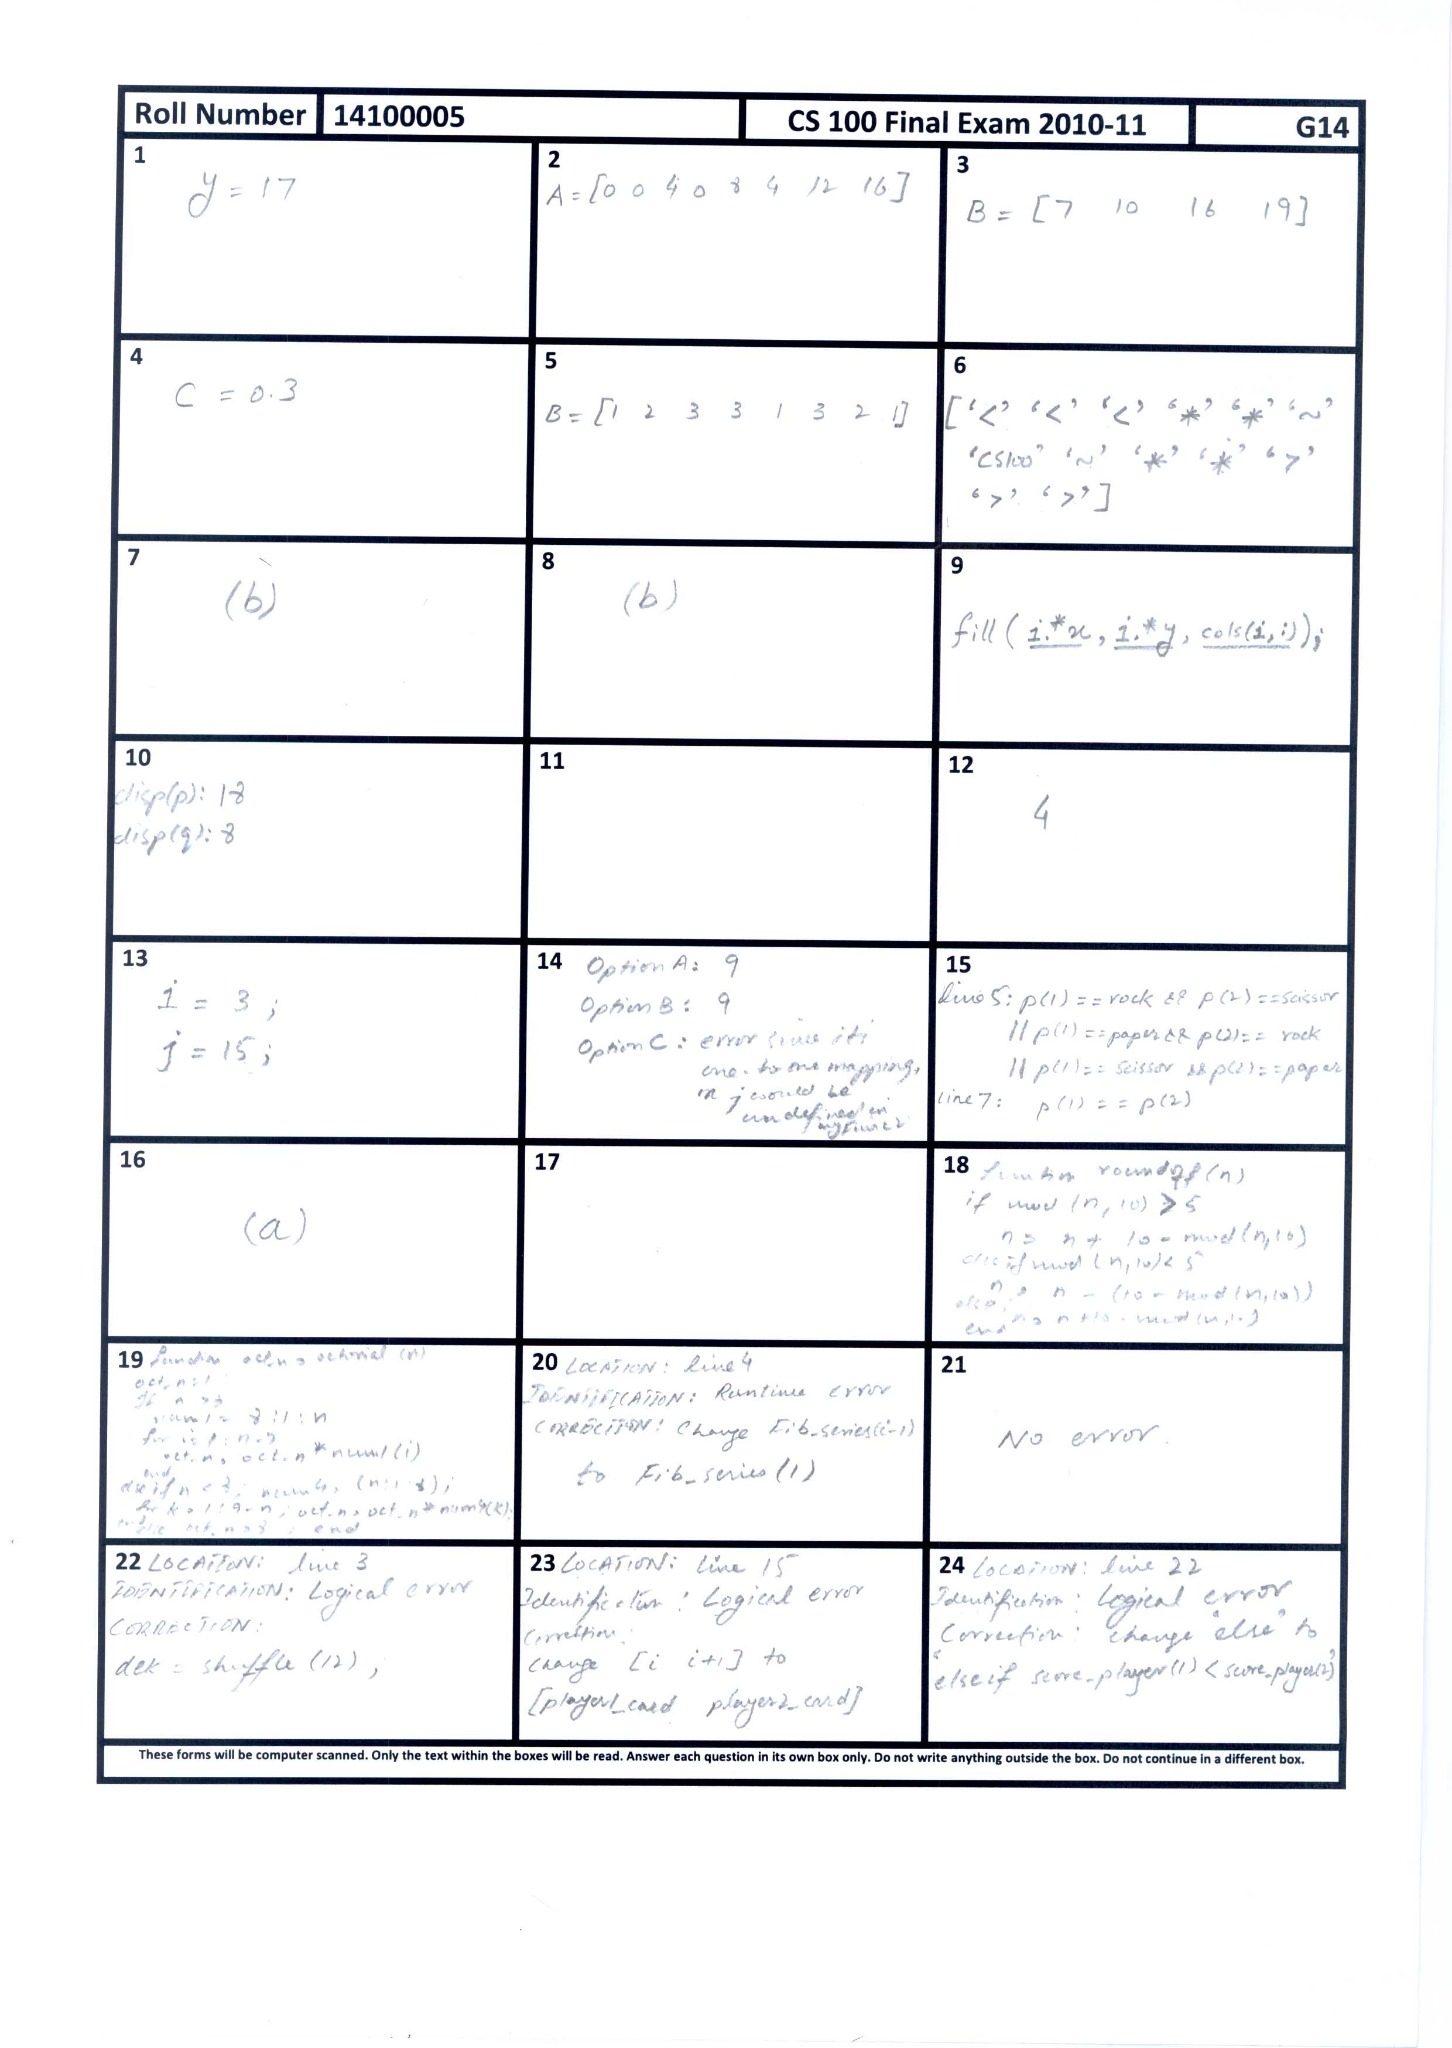 Roll Number 14100005 CS 100 Final Exam 2010-11 G14
1
y = 17
2
A = [0 0 4 0 8 4 12 16]
3
B = [7 10 16 19]
4
C = 0.3
5
B = [1 2 3 3 1 3 2 1]
6
['<' '<' '<' '*' '*' '~'
'CS100' '~' '*' '*' '>'
'>' '>']
7
(b)
8
(b)
9
fill ( i.*x, i.*y, cols(i,i));
10
disp(p): 18
disp(q): 8
11
12
4
13
i = 3 ;
j = 15 ;
14 Option A: 9
Option B: 9
Option C: error since it's
one-to-one mapping,
j would be
undefined in
15
line 5: p(1) == rock && p(2) == scissor
|| p(1) == paper && p(2) == rock
|| p(1) == scissor && p(2) == paper
line 7: p(1) == p(2)
16
(a)
17
18 function roundoff (n)
if mod (n, 10) > 5
n = n + 10 - mod (n,10)
elseif mod (n,10) < 5
n = n - (10 - mod (n,10))
else n = n + 10 - mod (n,10)
end
19 function oct_n = octorial (n)
oct_n = 1
if n > 8
num1 = 8:1:n
for i = 1 : n-7
oct_n = oct_n * num1 (i)
end
else if n < 8; (n:1:8);
for k = 1 : 9-n ; oct_n = oct_n * (k);
oct_n = 8 ; end
20 LOCATION: line 4
IDENTIFICATION: Runtime error
CORRECTION: Change Fib_series(i-1)
to Fib_series (1)
21
No error.
22 LOCATION: line 3
IDENTIFICATION: Logical error
CORRECTION:
dek = shuffle (12) ;
23 LOCATION: line 15
Identification: Logical error
Correction:
change [i i+1] to
[player1_card player2_card]
24 LOCATION: line 22
Identification: Logical error
Correction: change "else" to
"elseif score_player(1) < score_player(2)"
These forms will be computer scanned. Only the text within the boxes will be read. Answer each question in its own box only. Do not write anything outside the box. Do not continue in a different box.